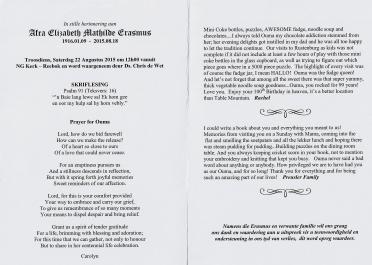 In stille herinnering aan
Afra Elizabeth Mathilde Erasmus
1916.01.09 - 2015.08.18
Troosdiens, Saterdag 22 Augustus 2015 om 12h00 vanuit
NG Kerk - Roebuk en word waargeneem deur Ds. Chris de Wet
SKRIFLESING
Psalm 91 (Teksvers: 16)
"'n Baie lang lewe sal Ek hom gee
en oor my hulp sal hy hom verbly."
Prayer for Ouma
Lord, how do we bid farewell
How can we make the release?
Of a heart so close to ours
Of a love that could never cease.
For an emptiness pursues us
And a stillness descends in reflection,
But with it spring forth joyful memories
Sweet reminders of our affection.
Lord, for this is your comfort provided
Your way to embrace and carry our grief,
To give us remembrance of so many moments
Your means to dispel despair and bring relief.
Grant us a spirit of tender gratitude
For a life, brimming with blessing and adoration;
For this time that we can gather, not only to honour
But to share in her centennial life celebration.
Carolyn
Mini Coke bottles, puzzles, AWESOME fudge, noodle soup and
chocolates....I always told Ouma my chocolate addiction stemmed from
her; her evening delights got instilled in my dad and he was all too happy
to let the tradition continue. Our visits to Rustenburg as kids was not
complete if it did not include at least a few hours of play with those mini
coke bottles in the glass cupboard, as well as trying to figure out which
piece goes where in a 5000 piece puzzle. The highlight of every visit was
of course the fudge jar, I mean HALLO! Ouma was the fudge queen!
And let's not forget that among all the sweet there was that super yummy,
thick vegetable noodle soup goodness...Ouma, you rocked for 99 years!
Love you. Enjoy your 100th Birthday in heaven, it's a better location
than Table Mountain. Rachel
I could write a book about you and everything you meant to us!
Memories from visiting you on a Sunday with Mama, coming into the
flat and smelling the ouetpans and all the lekker lunch and hoping there
was steam pudding for pudding. Building puzzles on the dining room
table. And you always keeping cricket score in your book, not to mention
your embroidery and knitting that kept you busy. Ouma never said a bad
word about anything or anybody. How privileged we are to have had you
as our Ouma, and for so long! Thank you for everything and for being
such an amazing part of our lives! Preuder Family
Namens die Erasmus en verwante familie wil ons graag
ons dank en waardering aan u uitspreek vir u teenwoordigheid en
ondersteuning in ons tyd van verlies, dit word opreg waardeer.